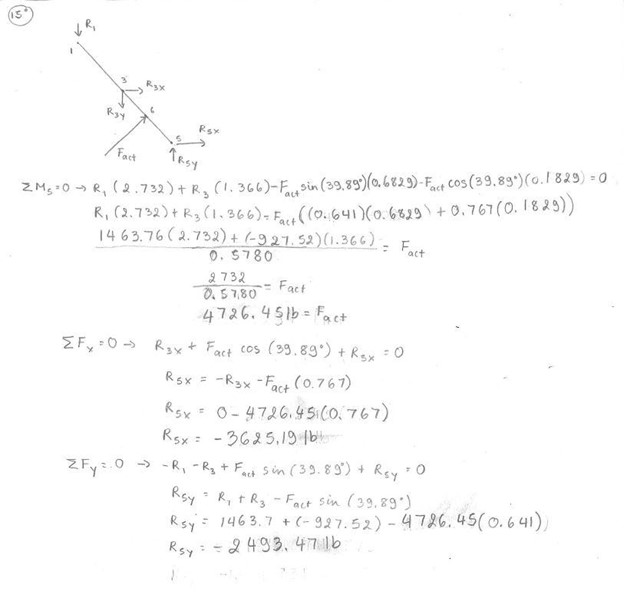 15°
↓ R1
1
3 → R3x
R3y
6
R5x
5
Fact
↑ R5y
ΣM5=0 → R1 (2.732) + R3 (1.366) - Fact sin(39.89°)(0.6829) - Fact cos(39.89°)(0.1829) = 0
R1 (2.732) + R3 (1.366) = Fact ((0.641)(0.6829) + 0.767(0.1829))
1463.76 (2.732) + (-927.52)(1.366) / 0.5780 = Fact
2732 / 0.5780 = Fact
4726.45 lb = Fact
ΣFx = 0 → R3x + Fact cos (39.89°) + R5x = 0
R5x = -R3x - Fact (0.767)
R5x = 0 - 4726.45 (0.767)
R5x = -3625.19 lb
ΣFy = 0 → -R1 - R3 + Fact sin (39.89°) + R5y = 0
R5y = R1 + R3 - Fact sin (39.89°)
R5y = 1463.7 + (-927.52) - 4726.45 (0.641)
R5y = -2493.47 lb